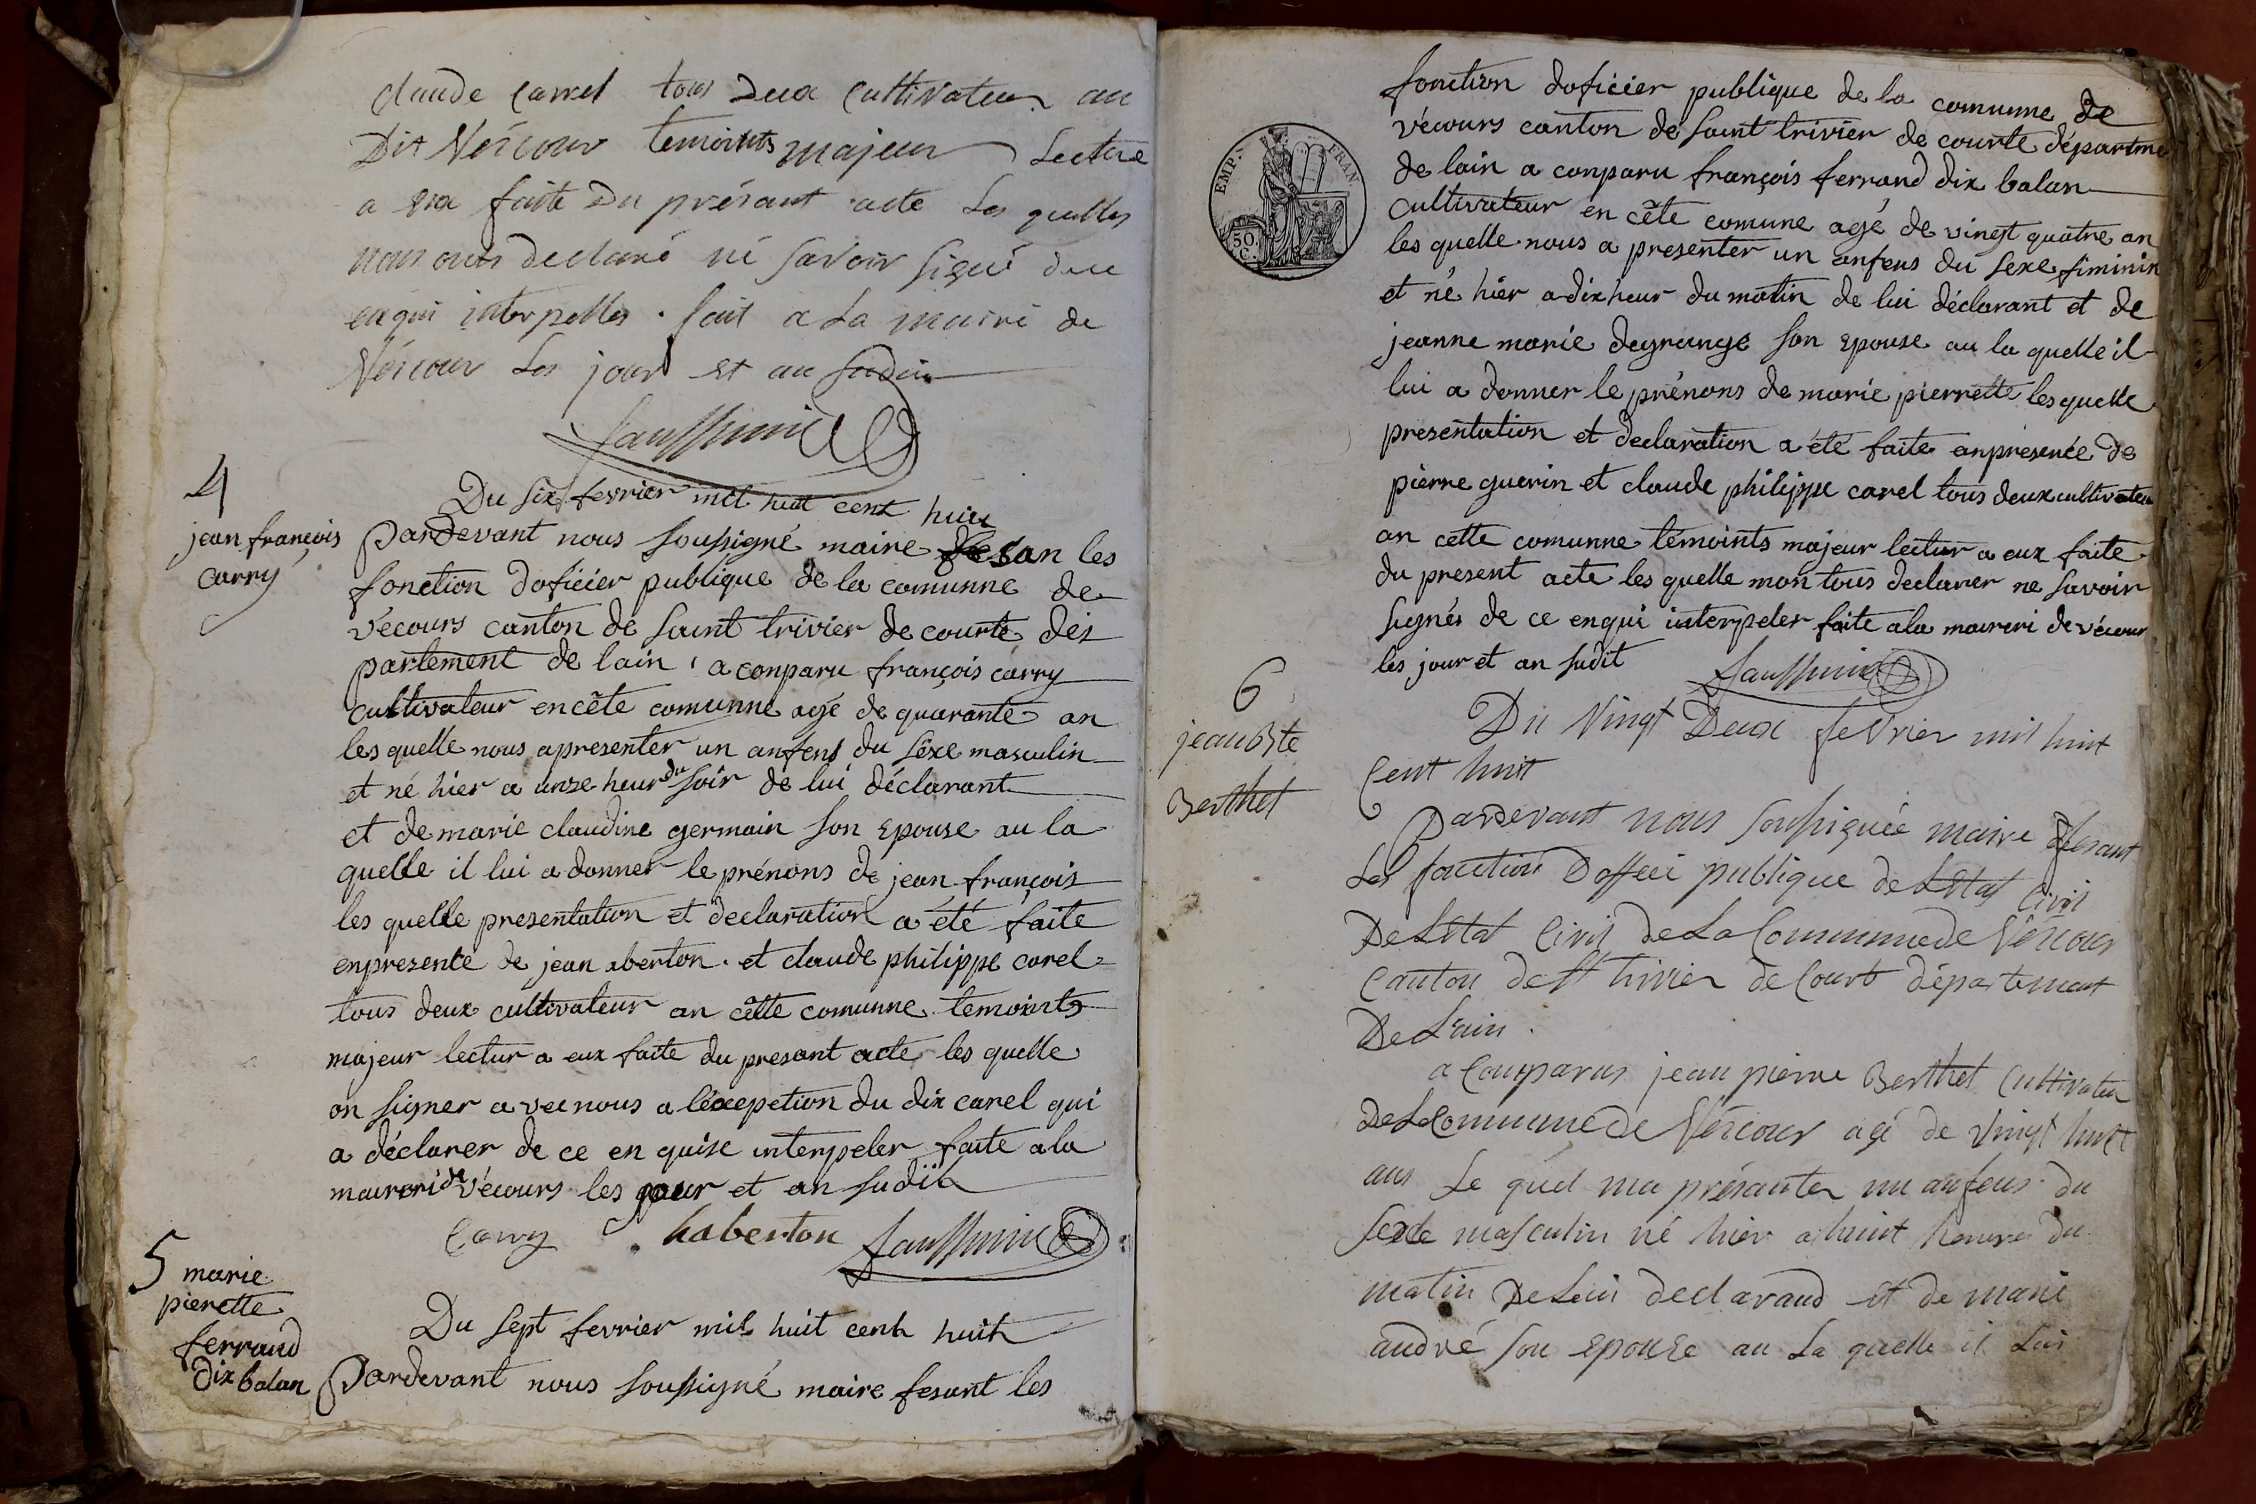 claude Carrel tous Deux Cultivateur au
Dit Vécour temoints majeur Lecture
a eux faite Du présant acte Les quelles
nous ons declaré né savoir signé de ce
enqui interpelles . fait a La mairi de
Vécour Les jour et an sudit
4
jean françois
carry
Du six fevrier mil huit cent huit
Pardevant nous soussigné maire fesan les
fonction doficier publique de la comunne de
vécours canton de saint trivier de courte dez
partement de lain a conparu françois carry
cultivateur en cête comunne agé de quarante an
les quelle nous apresenter un anfens du sexe masculin
et né hier a onze heur du soir de lui déclarant
et de marie claudine germain son epouse au la
quelle il lui a donner le prénons de jean françois
les quelle presentation et declaration a été faite
enpresente de jean aberton . et claude philippe carel
tous deux cultivateur an cêtte comunne temoints
majeur lectur a eux faite du presant acte les quelle
on signer avec nous a l'éxepetion du dix carel qui
a déclarer de ce en quise interpeler faite a la
maireri de vécours les jour et an sudit
Carry haberton
5 marie
pierette
ferrand
dix balan
Du sept fevrier mil huit cent huit
Pardevant nous soussigné maire fesant les
EMP. FRAN.
50.
C.
fonction doficier publique de la comunne de
vécours canton de saint trivier de courte départme
de lain a conparu françois ferrand dix balan
cultivateur en cête comune agé de vingt quatre an
les quelle nous a presenter un anfens du sexe fiminin
et né hier a dix heur du matin de lui déclarant et de
jeanne marie degrange son epouse au la quelle il
lui a donner le prénons de marie pierrette les quelle
presentation et declaration a été faite anpresence de
pierre guerin et claude philippe carel tous deux cultivateu
an cette comunne témoints majeur lectur a eux faite
du present acte les quelle mon tous declarer ne savoir
signés de ce enqui interpeler faite a la maireri de vécour
les jour et an sudit
6
jean bste
Berthet
Du Vingt Deux fevrier mil huit
Cent huit
Pardevant nous soussignée maire fesant
Les fonction D'offici publique de Letat Civil
De Letat Civil de La Commune de Vécour
Canton de St trivier de Court département
De L'ain .
a Comparus jean pierre Berthet Cultivateu
De La Commune De Vécour agé de Vingt huit
ans Le quel ma présanter un anfens du
sexte masculin né hier a huit heure du
matin De Lui declarand et de mari
andré son epouse au La quelle il Lui